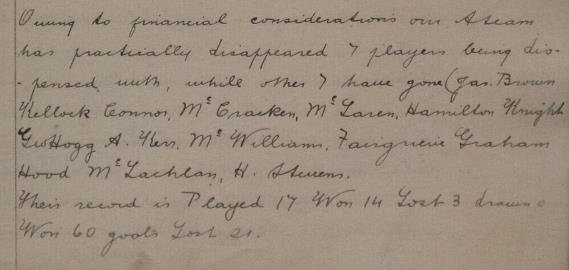 Owing to financial considerations our A team
has practically disappeared 7 players being dis-
-pensed with, while other 7 have gone (Jas. Brown
Kellock Connor, McCracken, McLaren, Hamilton Knight
Geo Hogg A. Kerr, McWilliams, Fairservie Graham
Hood McLachlan, H. Stevens.
Their record is Played 17 Won 14 Lost 3 drawn 0
Won 60 goals Lost 21.